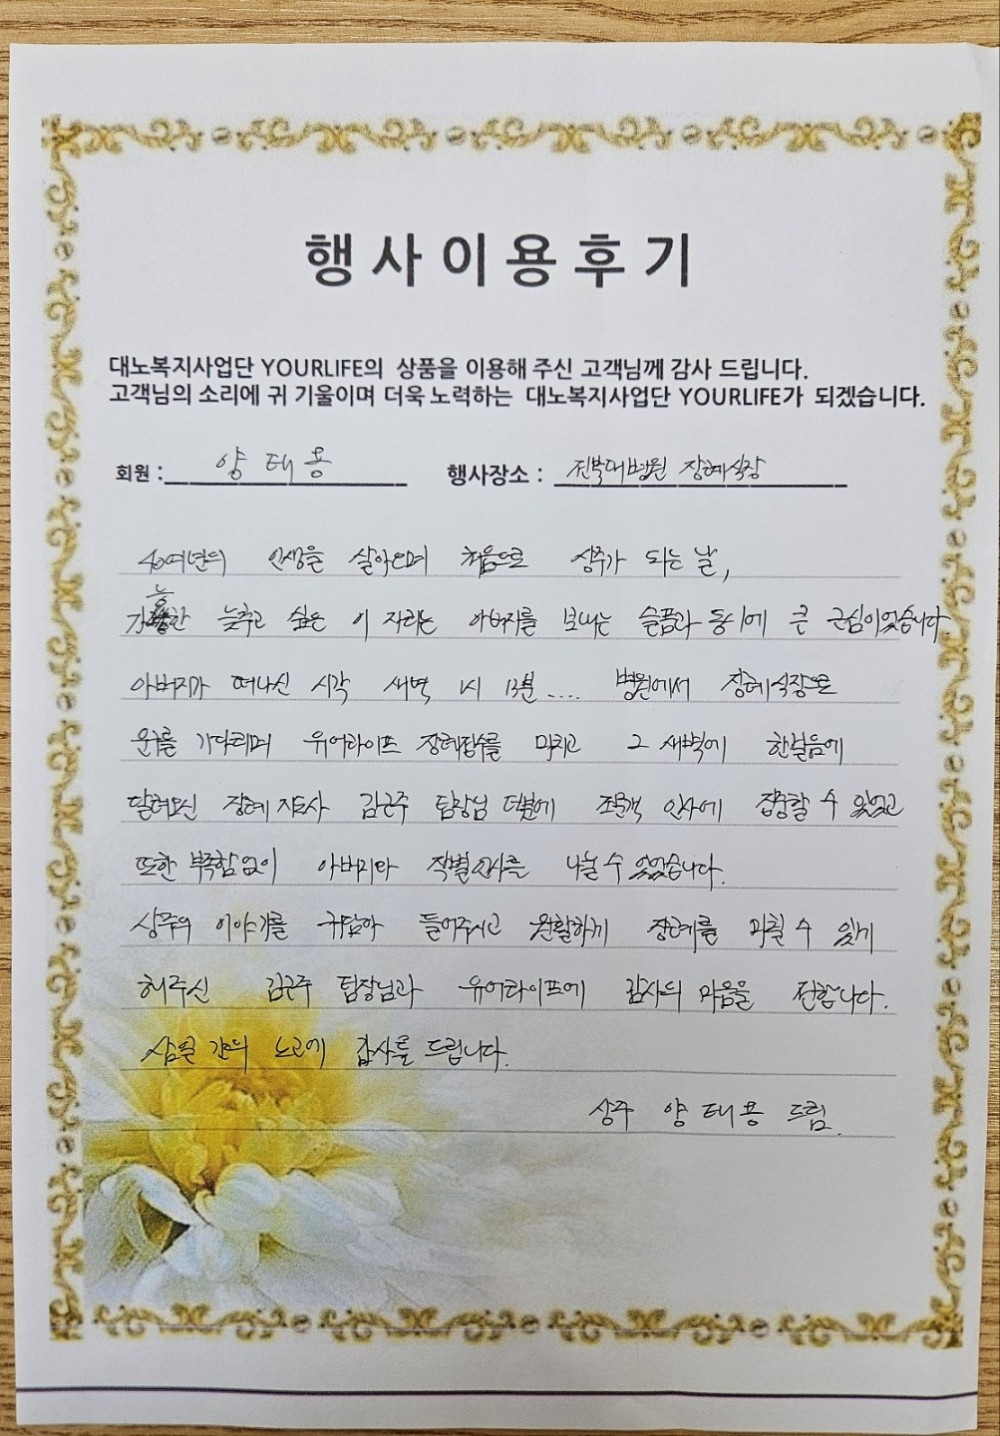 행사이용후기
대노복지사업단 YOURLIFE의 상품을 이용해 주신 고객님께 감사 드립니다.
고객님의 소리에 귀 기울이며 더욱 노력하는 대노복지사업단 YOURLIFE가 되겠습니다.
회원 : 양태용 행사장소 : 전북대병원 장례식장
40여년의 인생을 살아오며 처음으로 상주가 되는 날,
가능한 늦추고 싶은 이 자리는 아버지를 보내는 슬픔과 동시에 큰 근심이었습니다.
아버지가 떠나신 시각 새벽 1시 13분.... 병원에서 장례식장으로
운구를 기다리며 유어라이프 장례접수를 마치고 그 새벽에 한걸음에
달려오신 장례지도사 김근주 팀장님 덕분에 조문객 인사에 집중할 수 있었고
또한 부족함없이 아버지와 작별인사를 나눌 수 있었습니다.
상주의 이야기를 귀담아 들어주시고 원활하게 장례를 마칠 수 있게
해주신 김근주 팀장님과 유어라이프에 감사의 마음을 전합니다.
삼일 간의 노고에 감사를 드립니다.
상주 양태용 드림.